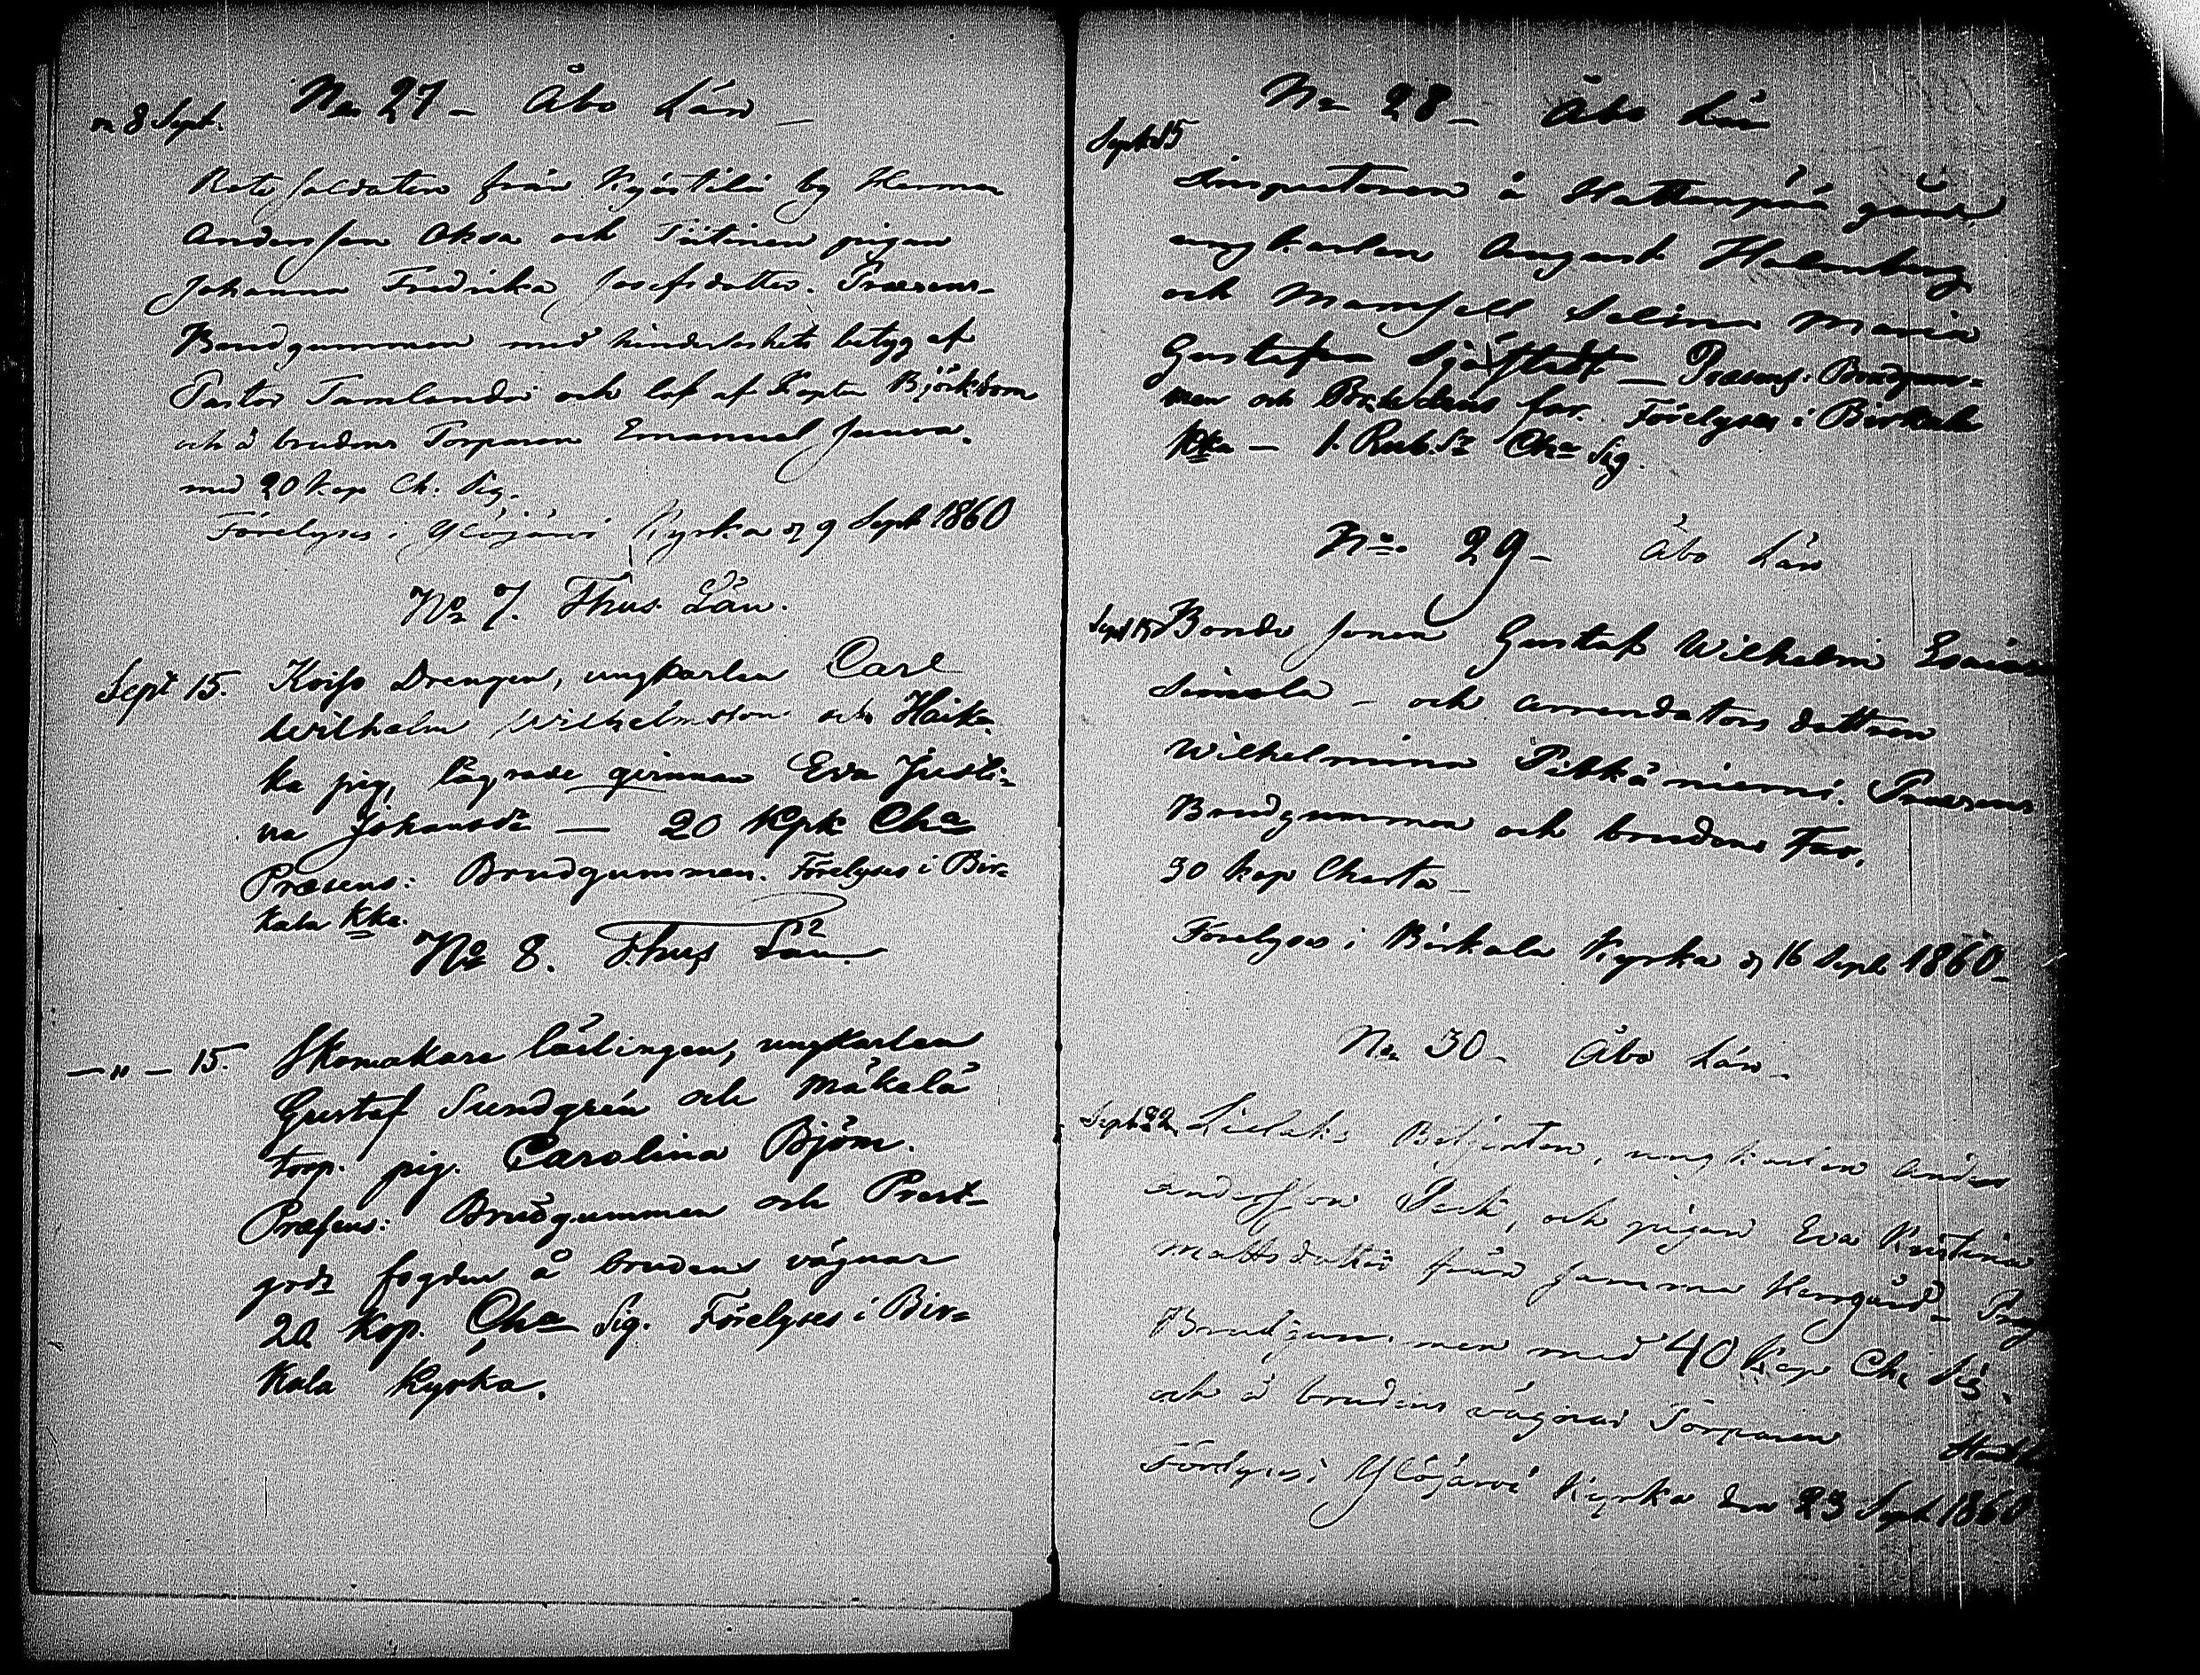 No 27 – Åbo Län –
8 Sept.
Rote soldaten från Kyöstilä by Herman
Andersson Oksa och Tiitinen pigan
Johanna Fredrika Josefsdotter. Præsens
Brudgummen med hinderlöshets betyg af
Pastor Tamlander och lof af Kapten Björkstam
och å brudens Torparen Emanuel Juura.
med 20 Kop Ch: Sig.
Förelyses i Ylöjärvi Kyrka d 9 Sept 1860
No 7. Thus Län.
Sept 15. Koiso Drengen, ungkarlen Carl
Wilhelm Wilhelmsson och Haika-
ka pig, lägrade qvinnan Eva Justi-
na Johansdr — 20 Kpk Cha
Præsens: Brudgummen. Förelyses i Bir-
kala Kka.
No 8. Thus Län.
—"— 15. Skomakare lärlingen, ungkarlen
Gustaf Sundgrén och Mäkelä
torp. pig. Carolina Björn.
Præsens: Brudgummen och Prest-
grds fogden å brudens vägnar
20 Kop. Cha Sig. Förelyses i Bir-
kala Kyrka.
No 28 – Åbo Län
Sept 15
Inspectoren å Hattanpää gård,
ungkarlen August Holmberg
och Mamsell Selima Maria
Gustafva Sjöstedt — Præsens: Brudgum-
men och Brudens far. Förelyses i Birkala
Kka — 1. Rub. Sr Cha Sig.
No. 29 – Åbo Län
Sept 15 Bonde sonen Gustaf Wilhelm Esaias
Simola – och arrendators dottren
Wilhelmina Pitkäniemi. Præsens
Brudgummen och brudens far.
30 Kop Charta –
Förelyses i Birkala Kyrka d 16 Sept 1860 –
No 30 – Åbo Län –
Sept 22 Lielaks Betjenten, ungkarlen Anders
Andersson Peck, och pigan Eva Kristina
Mattsdotter från samma Herrgård –
Brudgummen med 40 Kop Ch. Sig.
och å brudens vägnar Torparen
Förelyses i Ylöjärvi Kyrka den 23 Sept 1860